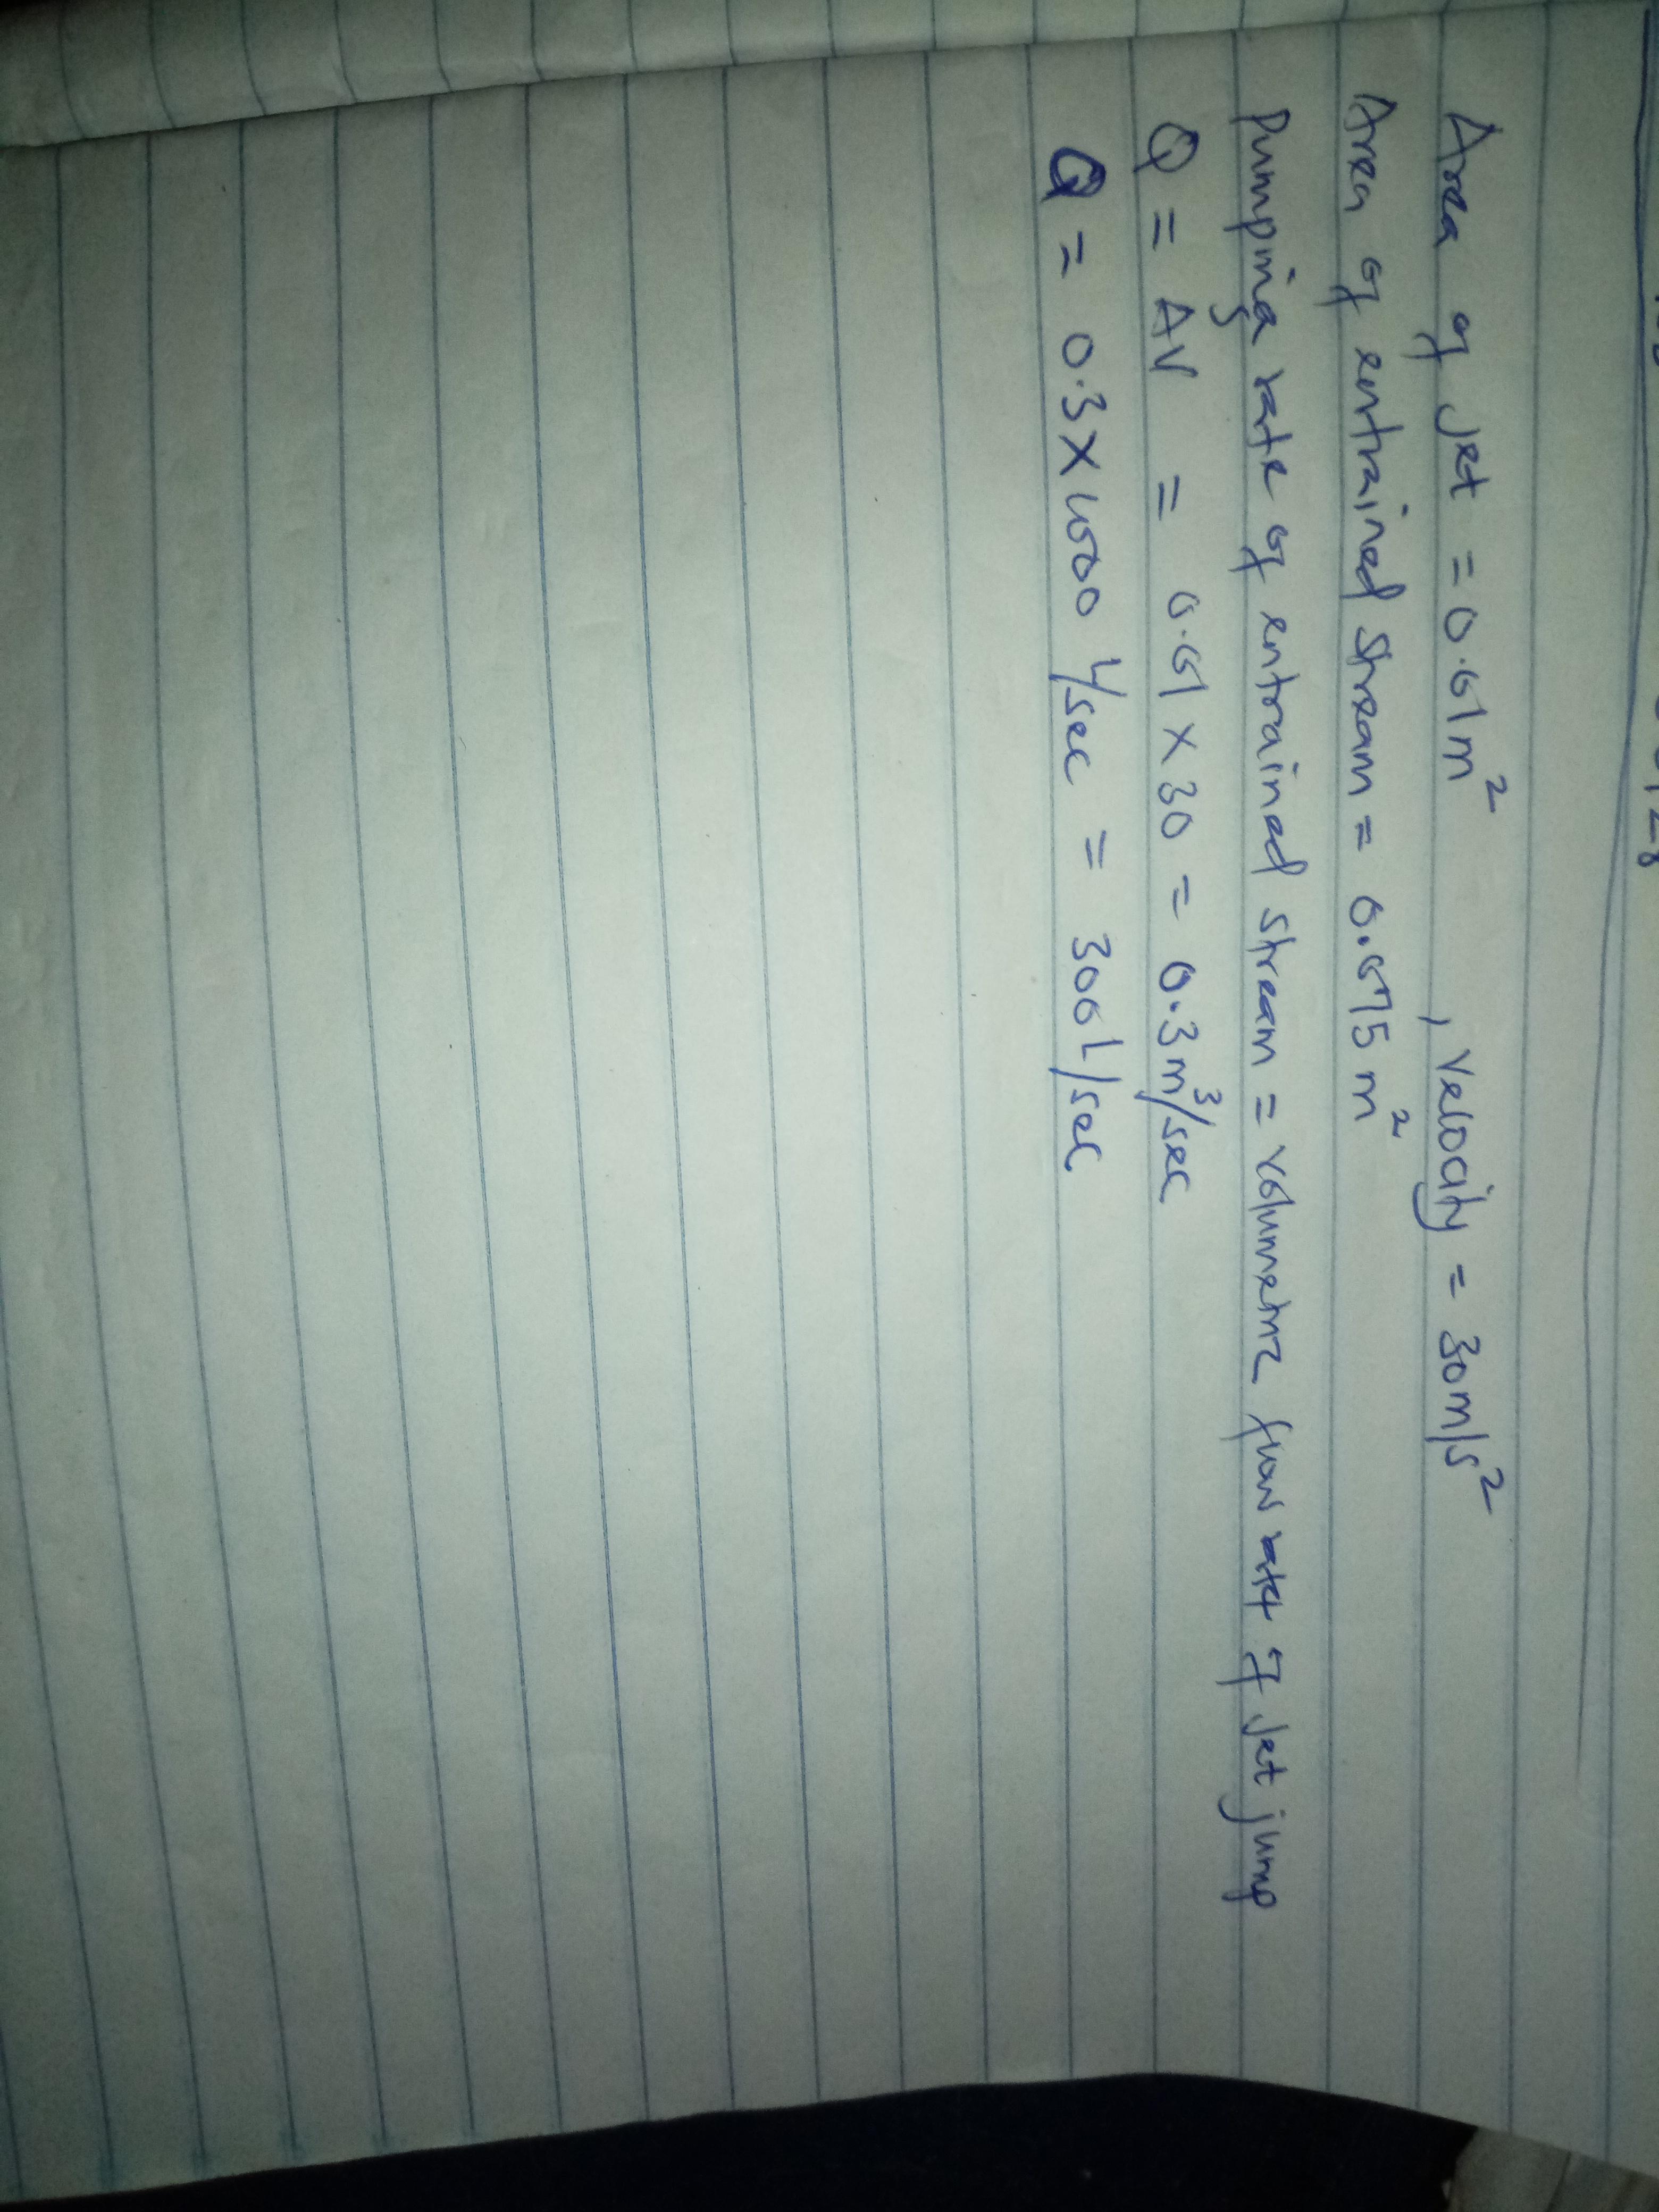 Area of Jet = 0.01m² , Velocity = 30m/s²
Area of entrained stream = 0.075 m²
Pumping rate of entrained stream = volumetric flow rate of Jet jump
Q = AV = 0.01 × 30 = 0.3m³/sec
Q = 0.3 × 1000 L/sec = 300L/sec